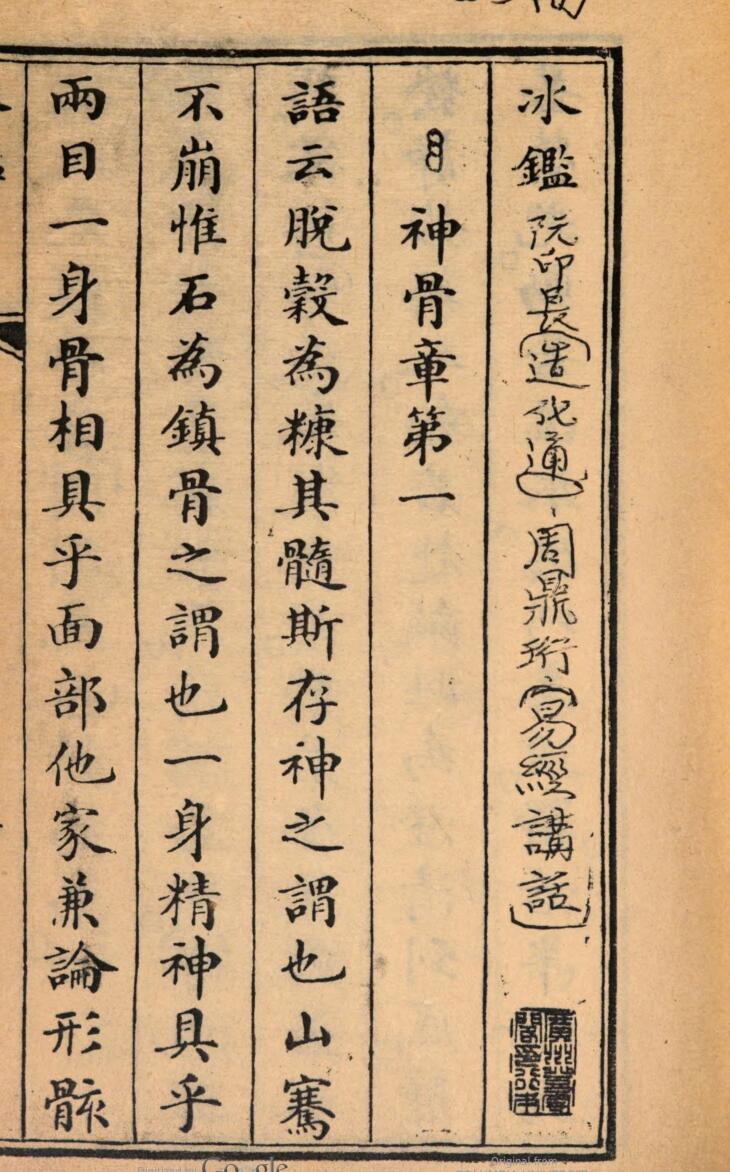 冰鑑 阮印長(造化通)、周鼎珩(易經講話)
神骨章第一
語云脫穀為糠其髓斯存神之謂也山騫
不崩惟石為鎮骨之謂也一身精神具乎
兩目一身骨相具乎面部他家兼論形骸
Google
Original from